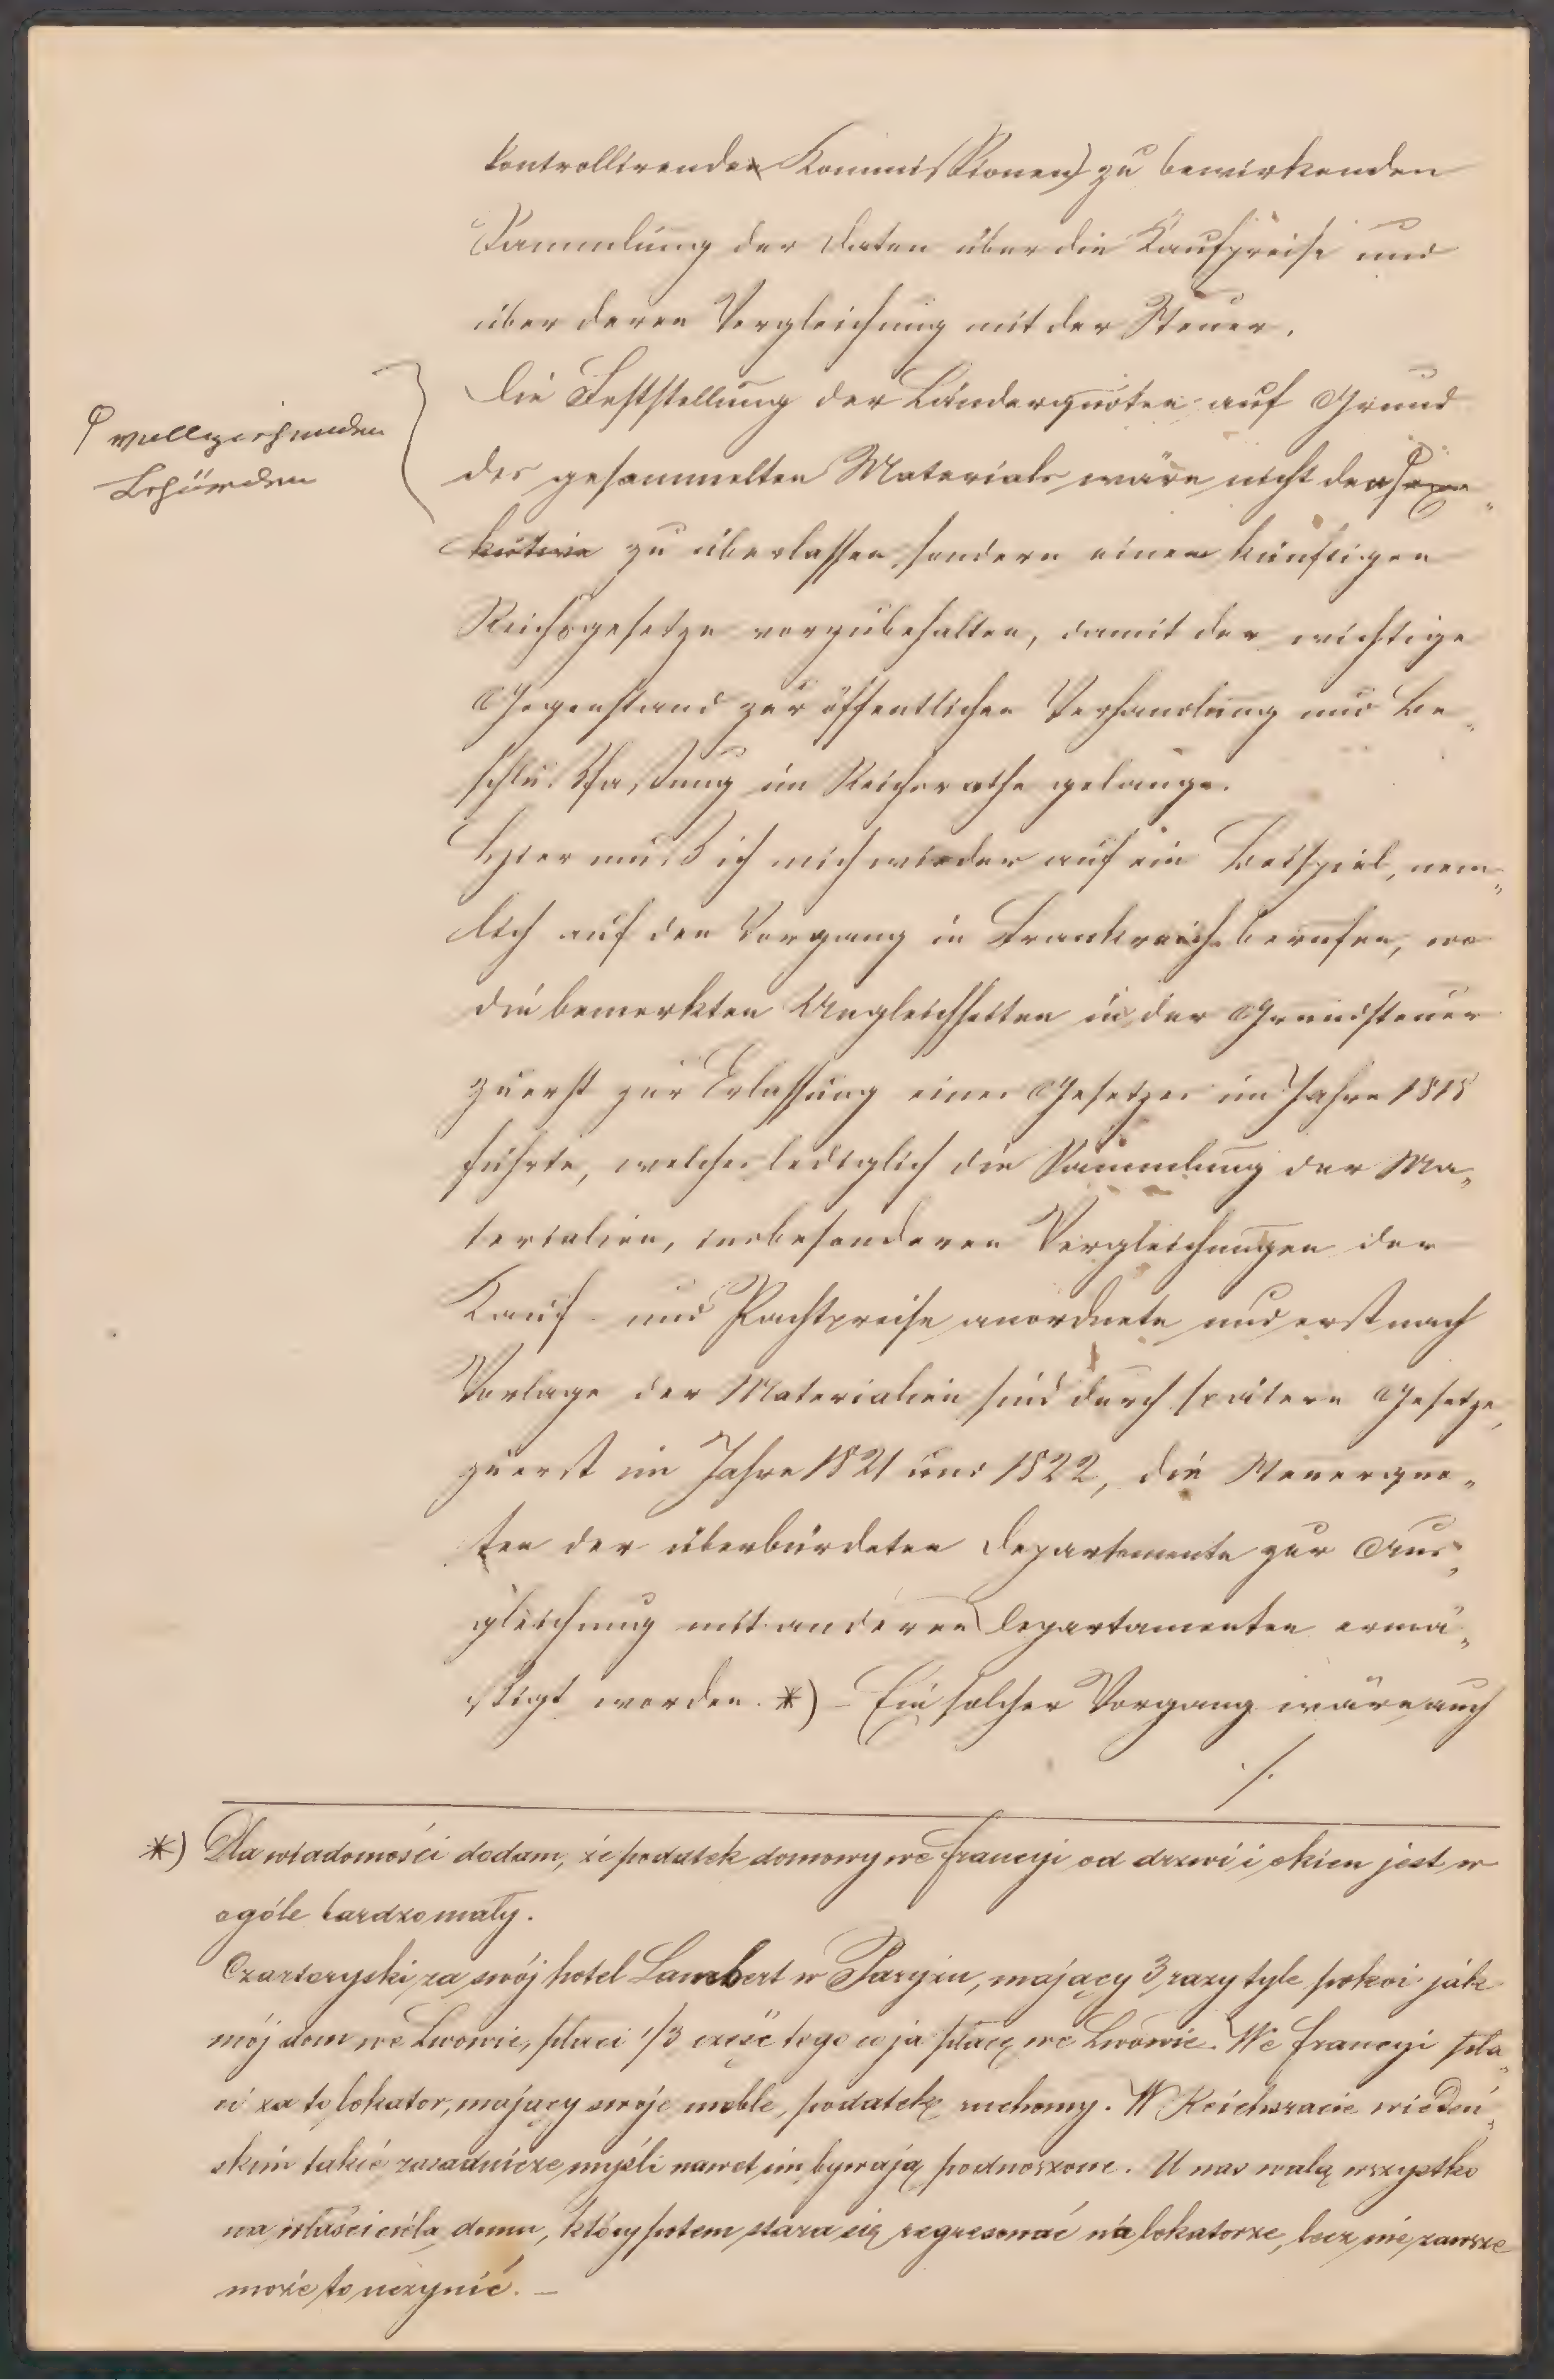 kontrollirenden Kommissionen) zu bewirkenden
Sammlung der Daten über die Kaufpreise und
über deren Vergleichung mit der Steuer.
Die Feststellung der Länderquoten auf Grund
vollziehenden
Behörden
des gesammelten Materials wäre nicht den Exe„
kutive zu überlassen, sondern einem künftigen
Reichsgesetze vorzubehalten, damit der wichtige
Gegenstand zur öffentlichen Verhandlung und Be„
schlußfassung im Reichsrathe gelange.
Hier muß ich mich wieder auf ein Beispiel, nem„
lich auf den Vorgang in Frankreich berufen, wo
die bemerkten Ungleichheiten in der Grundsteuer
zuerst zur Erlassung eines Gesetzes im Jahre 1818
führte, welches lediglich die Sammlung der Ma„
terialien, insbesonderen Vergleichungen der
Kauf- und Pachtpreise anordnete und erst nach
Vorlage der Materialien sind durch spätere Gesetze,
zuerst im Jahre 1821 und 1822, die Steuerquo„
ten der überbürdeten Departemente zur Aus„
gleichung mit anderen Departamenten ermä„
ßigt worden. *) – Ein solcher Vorgang wäre auch
./.
*) Dla wiadomości dodam, że podatek domowy we Francyi od drzwi i okien jest w
ogóle bardzo mały.
Czartoryski za swój hotel Lambert w Paryżu, mający 3 razy tyle pokoi jak
mój dom we Lwowie, płaci 1/3 część tego co ja płacę we Lwowie. We Francyi pła„
ci za to lokator, mający swoje meble, podatek ruchomy. W Reichsracie wiedeń„
skim takie zasadnicze myśli nawet nie bywają podnoszone. U nas walą wszystko
na właściciela domu, który potem stara się regresować na lokatorze, lecz nie zawsze
może to uczynić. –